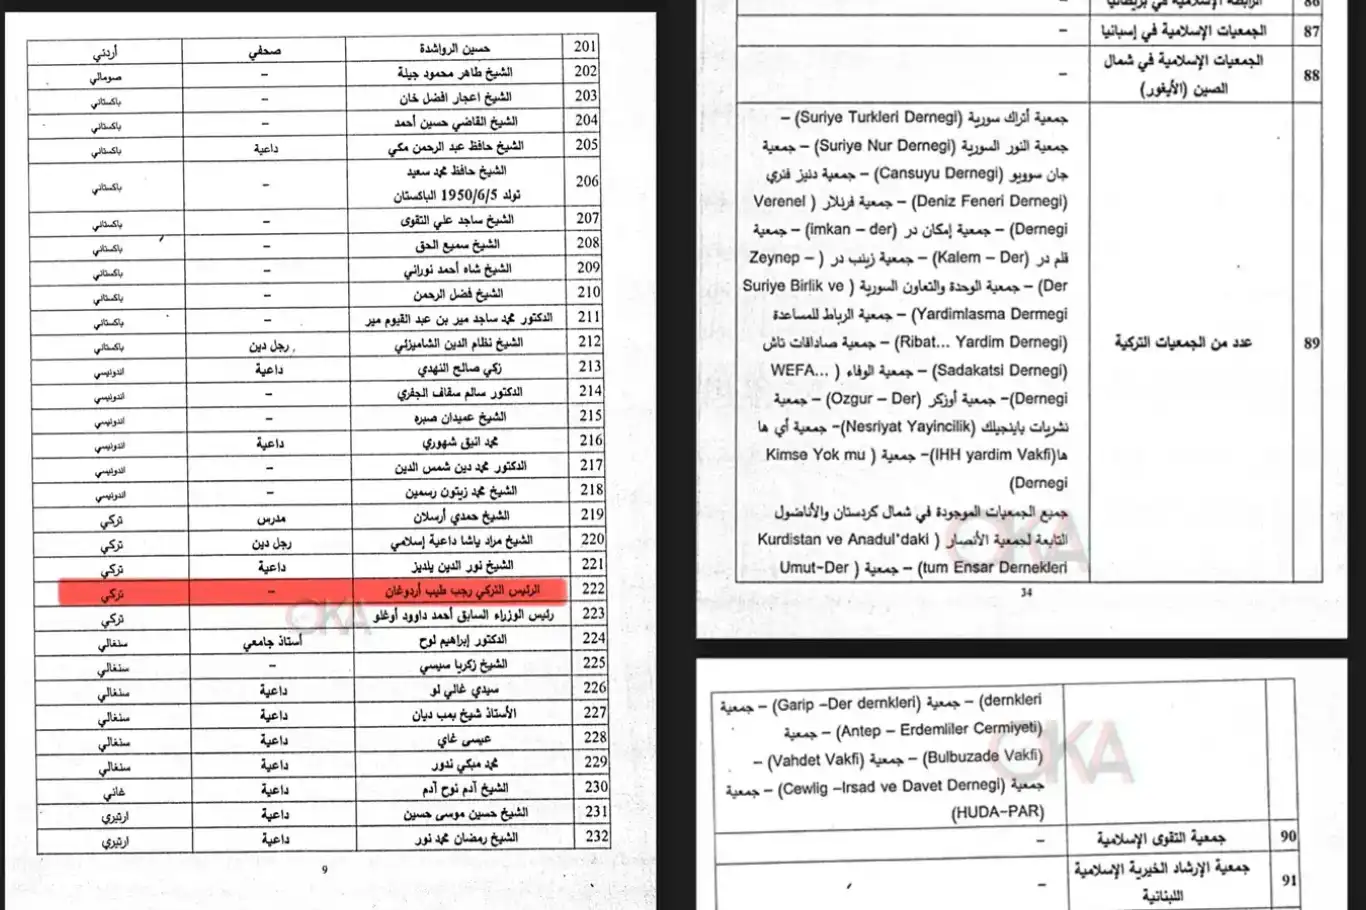 201 حسين الرواشدة صحفي أردني
202 الشيخ طاهر محمود جيلة – صومالي
203 الشيخ اعجاز افضل خان – باكستاني
204 الشيخ القاضي حسين أحمد – باكستاني
205 الشيخ حافظ عبد الرحمن مكي داعية باكستاني
206 الشيخ حافظ محمد سعيد – باكستاني
تولد 1950/6/5 الباكستان
207 الشيخ ساجد علي التقوى – باكستاني
208 الشيخ سميع الحق – باكستاني
209 الشيخ شاه أحمد نوراني – باكستاني
210 الشيخ فضل الرحمن – باكستاني
211 الدكتور محمد ساجد مير بن عبد القيوم مير – باكستاني
212 الشيخ نظام الدين الشاميزلي رجل دين باكستاني
213 زكي صالح النهدي داعية اندونيسي
214 الدكتور سالم سقاف الجفري – اندونيسي
215 الشيخ عميدان صبره – اندونيسي
216 محمد انيق شهوري داعية اندونيسي
217 الدكتور محمد دين شمس الدين – اندونيسي
218 الشيخ محمد زيتون رسمين – اندونيسي
219 الشيخ حمدي أرسلان مدرس تركي
220 الشيخ مراد ياشا داعية إسلامي رجل دين تركي
221 الشيخ نور الدين يلديز داعية تركي
222 الرئيس التركي رجب طيب أردوغان – تركي
223 رئيس الوزراء السابق أحمد داوود أوغلو تركي
224 الدكتور إبراهيم لوح أستاذ جامعي سنغالي
225 الشيخ زكريا سيسي – سنغالي
226 سيدي غالي لو داعية سنغالي
227 الأستاذ شيخ بمب ديان داعية سنغالي
228 عيسى غاي داعية سنغالي
229 محمد مبكي ندور داعية سنغالي
230 الشيخ آدم نوح آدم داعية غاني
231 الشيخ حسين موسى حسين داعية ارتيري
232 الشيخ رمضان محمد نور داعية ارتيري
9
OKA
86 الرابطة الإسلامية في بريطانيا –
87 الجمعيات الإسلامية في إسبانيا –
88 الجمعيات الإسلامية في شمال –
الصين (الأيغور)
89 عدد من الجمعيات التركية
جمعية أتراك سورية (Suriye Turkleri Dernegi) –
جمعية النور السورية (Suriye Nur Dernegi) – جمعية
جان سوويو (Cansuyu Dernegi) – جمعية دنيز فنري
(Deniz Feneri Dernegi) – جمعية فرنلار ( Verenel
Dernegi) – جمعية إمكان در (imkan – der) – جمعية
قلم در (Kalem – Der) – جمعية زينب در ( – Zeynep
Der) – جمعية الوحدة والتعاون السورية ( Suriye Birlik ve
Yardimlasma Dermegi) – جمعية الرباط للمساعدة
(Ribat... Yardim Dernegi) – جمعية صاداقات تاش
(Sadakatsi Dernegi) – جمعية الوفاء ( ...WEFA
Dernegi)– جمعية أوزكر (Ozgur – Der) – جمعية
نشريات ياينجيلك (Nesriyat Yayincilik)– جمعية أي ها
ها(IHH yardim Vakfi)– جمعية ( Kimse Yok mu
Dernegi)
جميع الجمعيات الموجودة في شمال كردستان والأناضول
التابعة لجمعية الأنصار ( Kurdistan ve Anadul'daki
tum Ensar Dernekleri) – جمعية ( Umut–Der
34
OKA
dernkleri) – جمعية (Garip –Der dernkleri) – جمعية
(Antep – Erdemliler Cermiyeti) – جمعية
(Bulbuzade Vakfi) – جمعية (Vahdet Vakfi) –
جمعية (Cewlig –Irsad ve Davet Dernegi) – جمعية
(HUDA-PAR)
90 جمعية التقوى الإسلامية –
91 جمعية الإرشاد الخيرية الإسلامية –
اللبنانية
OKA